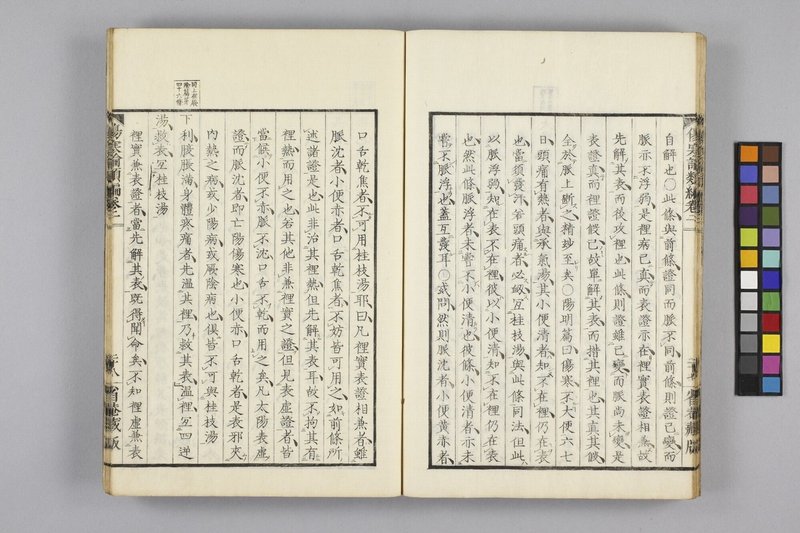 自解也○此條與前條證同而脈不同前條則證已變而
脈亦不浮弱是裡病已真而表證亦在裡實表證相兼故
先解其表而後攻裡也此條則證雖已變而脈尚未變是
表證真而裡證假已故單解其表而措其裡也其真其假
全於脈上斷之精玅至矣○陽明篇曰傷寒不大便六七
日頭痛有熱者與承氣湯其小便清者知不在裡仍在表
也當須發汗若頭痛者必衂宜桂枝湯與此條同法但此
以脈浮弱知在表不在裡彼以小便清知不在裡仍在表
也然此條脈浮者未嘗不小便清也彼條小便清者亦未
嘗不脈浮也蓋互發耳○或問然則脈沈者小便黃赤者
口舌乾焦者不可用桂枝湯耶曰凡裡實表證相兼者雖
脈沈者小便赤者口舌乾焦者不妨皆可用之如前條所
述諸證是也此非治其裡熱但先解其表耳故不拘其有
裡熱而用之也若其他非兼裡實之證但見表虛證者皆
當候小便不赤脈不沈口舌不乾而用之矣凡太陽表虛
證而脈沈者即亡陽傷寒也小便赤口舌乾者是表邪夾
內熱之病或少陽病或厥陰病也俱皆不可與桂枝湯
下利腹脹滿身體疼痛者先溫其裡乃救其表溫裡宜四逆
湯救表宜桂枝湯
裡實兼表證者當先解其表既得聞命矣不知裡虛兼表
傷寒論類編卷二
省菴藏版